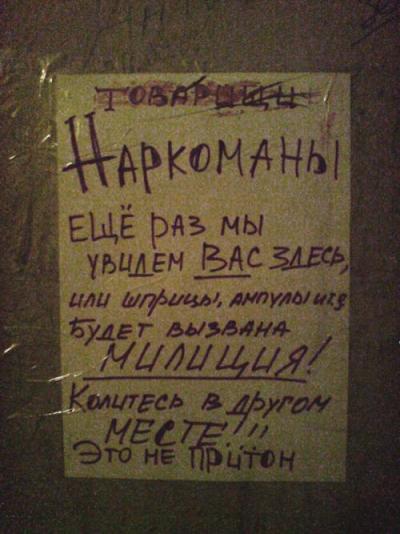 ТОВАРИЩИ
НАРКОМАНЫ
ЕЩЁ РАЗ МЫ
УВИДЕМ ВАС ЗДЕСЬ,
ИЛИ ШПРИЦЫ, АМПУЛЫ И Т.Д
БУДЕТ ВЫЗВАНА
МИЛИЦИЯ!
КОЛИТЕСЬ В ДРУГОМ
МЕСТЕ!!
ЭТО НЕ ПРИТОН